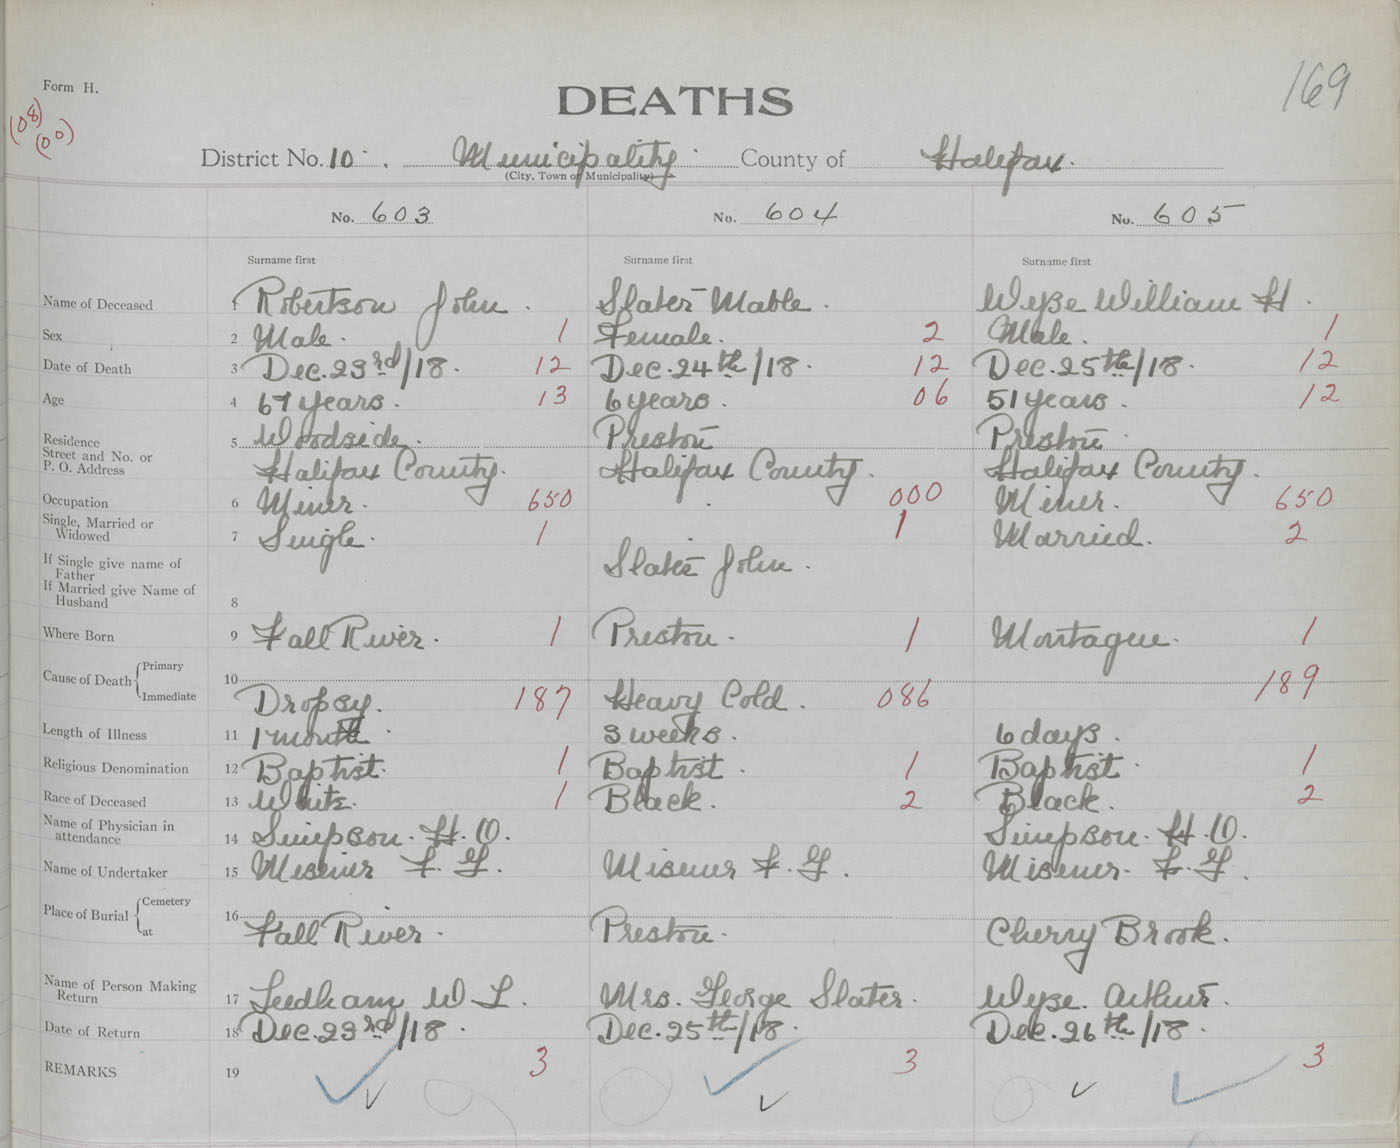 169
Form H.
DEATHS
(08)
(00)
District No. 10. Municipality County of Halifax.
(City, Town or Municipality)
No. 603 No. 604 No. 605
Surname first Surname first Surname first
Name of Deceased 1 Robertson John. Slater Mable. Wyse William H.
Sex 2 Male. 1 Female. 2 Male. 1
Date of Death 3 Dec. 23rd/18. 12 Dec. 24th/18. 12 Dec. 25th/18. 12
Age 4 67 years. 13 6 years. 06 51 years. 12
Residence 5 Woodside. Preston Preston
Street and No. or
P. O. Address Halifax County. Halifax County. Halifax County.
Occupation 6 Miner. 650 . 000 Miner. 650
Single, Married or
Widowed 7 Single. 1 1 Married. 2
If Single give name of
Father Slater John.
If Married give Name of
Husband 8
Where Born 9 Fall River. 1 Preston. 1 Montague. 1
Cause of Death Primary 10 189
Immediate Dropsy. 187 Heavy Cold. 086
Length of Illness 11 1 month. 3 weeks. 6 days.
Religious Denomination 12 Baptist. 1 Baptist. 1 Baptist. 1
Race of Deceased 13 White. 1 Black. 2 Black. 2
Name of Physician in
attendance 14 Simpson. H. O. Simpson. H. O.
Name of Undertaker 15 Misener F. G. Misener F. G. Misener. F. G.
Place of Burial Cemetery 16
at Fall River. Preston. Cherry Brook.
Name of Person Making
Return 17 Leedham W L. Mrs. George Slater. Wyse. Arthur.
Date of Return 18 Dec. 23rd/18. Dec. 25th/18. Dec. 26th/18.
REMARKS 19 3 3 3